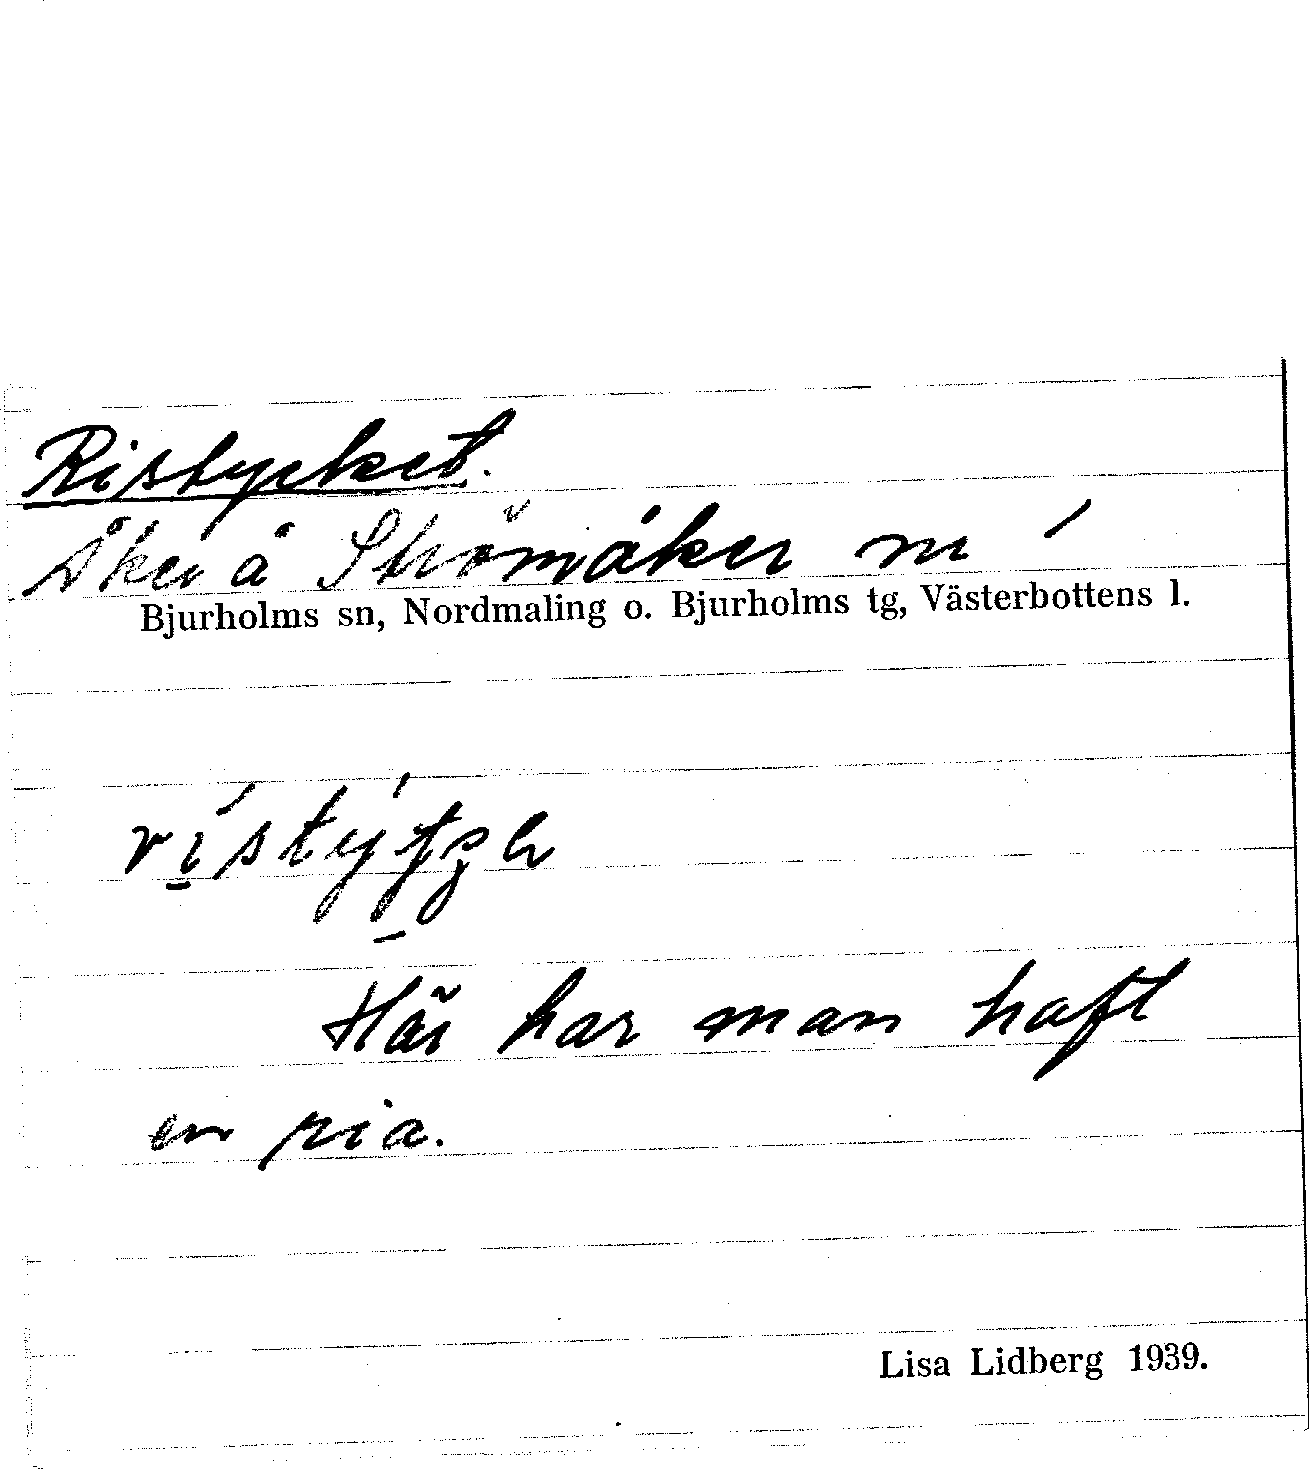 Ristycket.
Åker å Strömåker nr 1
Bjurholms sn, Nordmaling o. Bjurholms tg, Västerbottens l.
Här har man haft
en ria.
Lisa Lidberg 1939.